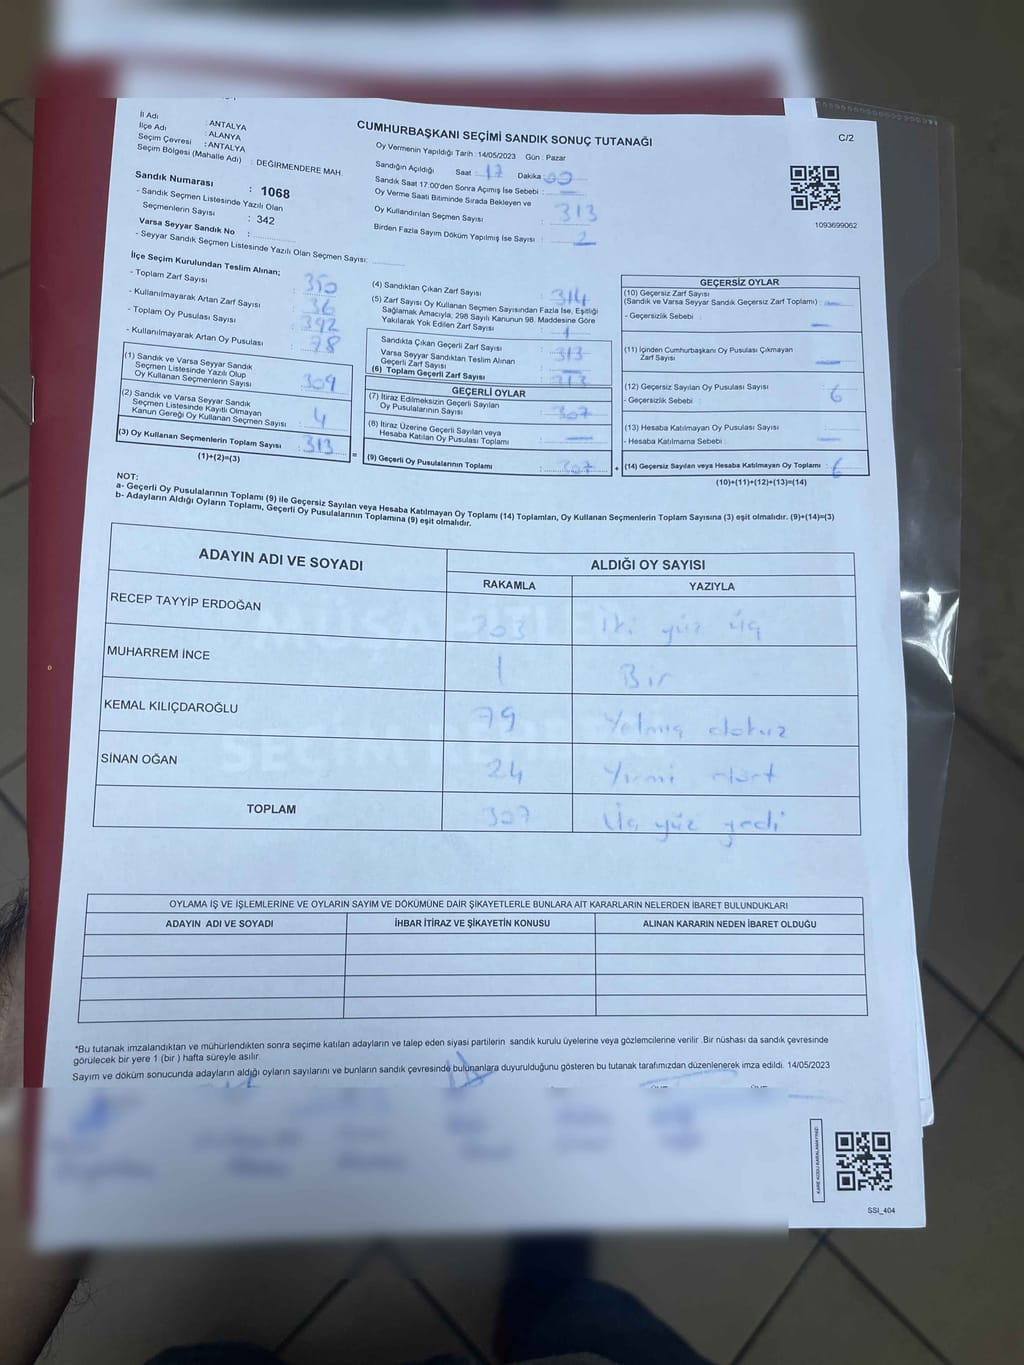 İl Adı : ANTALYA
İlçe Adı : ALANYA
Seçim Çevresi : ANTALYA
Seçim Bölgesi (Mahalle Adı) : DEĞİRMENDERE MAH.
Sandık Numarası : 1068
- Sandık Seçmen Listesinde Yazılı Olan
Seçmenlerin Sayısı : 342
Varsa Seyyar Sandık No :
- Seyyar Sandık Seçmen Listesinde Yazılı Olan Seçmen Sayısı:
CUMHURBAŞKANI SEÇİMİ SANDIK SONUÇ TUTANAĞI
C/2
Oy Vermenin Yapıldığı Tarih : 14/05/2023 Gün : Pazar
Sandığın Açıldığı Saat : 17 Dakika : 00
Sandık Saat 17:00'den Sonra Açımış İse Sebebi : —
Oy Verme Saati Bitiminde Sırada Bekleyen ve
Oy Kullandırılan Seçmen Sayısı : 313
Birden Fazla Sayım Döküm Yapılmış İse Sayısı : 2
1093699062
İlçe Seçim Kurulundan Teslim Alınan;
- Toplam Zarf Sayısı : 350
- Kullanılmayarak Artan Zarf Sayısı : 36
- Toplam Oy Pusulası Sayısı : 392
- Kullanılmayarak Artan Oy Pusulası : 78
(1) Sandık ve Varsa Seyyar Sandık
Seçmen Listesinde Yazılı Olup
Oy Kullanan Seçmenlerin Sayısı : 309
(2) Sandık ve Varsa Seyyar Sandık
Seçmen Listesinde Kayıtlı Olmayan
Kanun Gereği Oy Kullanan Seçmen Sayısı : 4
(3) Oy Kullanan Seçmenlerin Toplam Sayısı : 313
(1)+(2)=(3)
=
(4) Sandıktan Çıkan Zarf Sayısı : 314
(5) Zarf Sayısı Oy Kullanan Seçmen Sayısından Fazla İse, Eşitliği
Sağlamak Amacıyla, 298 Sayılı Kanunun 98. Maddesine Göre
Yakılarak Yok Edilen Zarf Sayısı : 1
Sandıkta Çıkan Geçerli Zarf Sayısı : 313
Varsa Seyyar Sandıktan Teslim Alınan
Geçerli Zarf Sayısı : —
(6) Toplam Geçerli Zarf Sayısı : 313
GEÇERLİ OYLAR
(7) İtiraz Edilmeksizin Geçerli Sayılan
Oy Pusulalarının Sayısı : 307
(8) İtiraz Üzerine Geçerli Sayılan veya
Hesaba Katılan Oy Pusulası Toplamı : —
(9) Geçerli Oy Pusulalarının Toplamı : 307
+
GEÇERSİZ OYLAR
(10) Geçersiz Zarf Sayısı
(Sandık ve Varsa Seyyar Sandık Geçersiz Zarf Toplamı) : —
- Geçersizlik Sebebi : —
(11) İçinden Cumhurbaşkanı Oy Pusulası Çıkmayan
Zarf Sayısı : —
(12) Geçersiz Sayılan Oy Pusulası Sayısı : 6
- Geçersizlik Sebebi :
(13) Hesaba Katılmayan Oy Pusulası Sayısı :
- Hesaba Katılmama Sebebi : —
(14) Geçersiz Sayılan veya Hesaba Katılmayan Oy Toplamı : 6
(10)+(11)+(12)+(13)=(14)
NOT:
a- Geçerli Oy Pusulalarının Toplamı (9) ile Geçersiz Sayılan veya Hesaba Katılmayan Oy Toplamı (14) Toplamları, Oy Kullanan Seçmenlerin Toplam Sayısına (3) eşit olmalıdır. (9)+(14)=(3)
b- Adayların Aldığı Oyların Toplamı, Geçerli Oy Pusulalarının Toplamına (9) eşit olmalıdır.
ADAYIN ADI VE SOYADI ALDIĞI OY SAYISI
RAKAMLA YAZIYLA
RECEP TAYYİP ERDOĞAN 203 İki yüz üç
MUHARREM İNCE 1 Bir
KEMAL KILIÇDAROĞLU 79 Yetmiş dokuz
SİNAN OĞAN 24 Yirmi dört
TOPLAM 307 Üç yüz yedi
OYLAMA İŞ VE İŞLEMLERİNE VE OYLARIN SAYIM VE DÖKÜMÜNE DAİR ŞİKAYETLERLE BUNLARA AİT KARARLARIN NELERDEN İBARET BULUNDUKLARI
ADAYIN ADI VE SOYADI İHBAR İTİRAZ VE ŞİKAYETİN KONUSU ALINAN KARARIN NEDEN İBARET OLDUĞU
*Bu tutanak imzalandıktan ve mühürlendikten sonra seçime katılan adayların ve talep eden siyasi partilerin sandık kurulu üyelerine veya gözlemcilerine verilir. Bir nüshası da sandık çevresinde
görülecek bir yere 1 (bir ) hafta süreyle asılır.
Sayım ve döküm sonucunda adayların aldığı oyların sayılarını ve bunların sandık çevresinde bulunanlara duyurulduğunu gösteren bu tutanak tarafımızdan düzenlenerek imza edildi. 14/05/2023
SSI_404